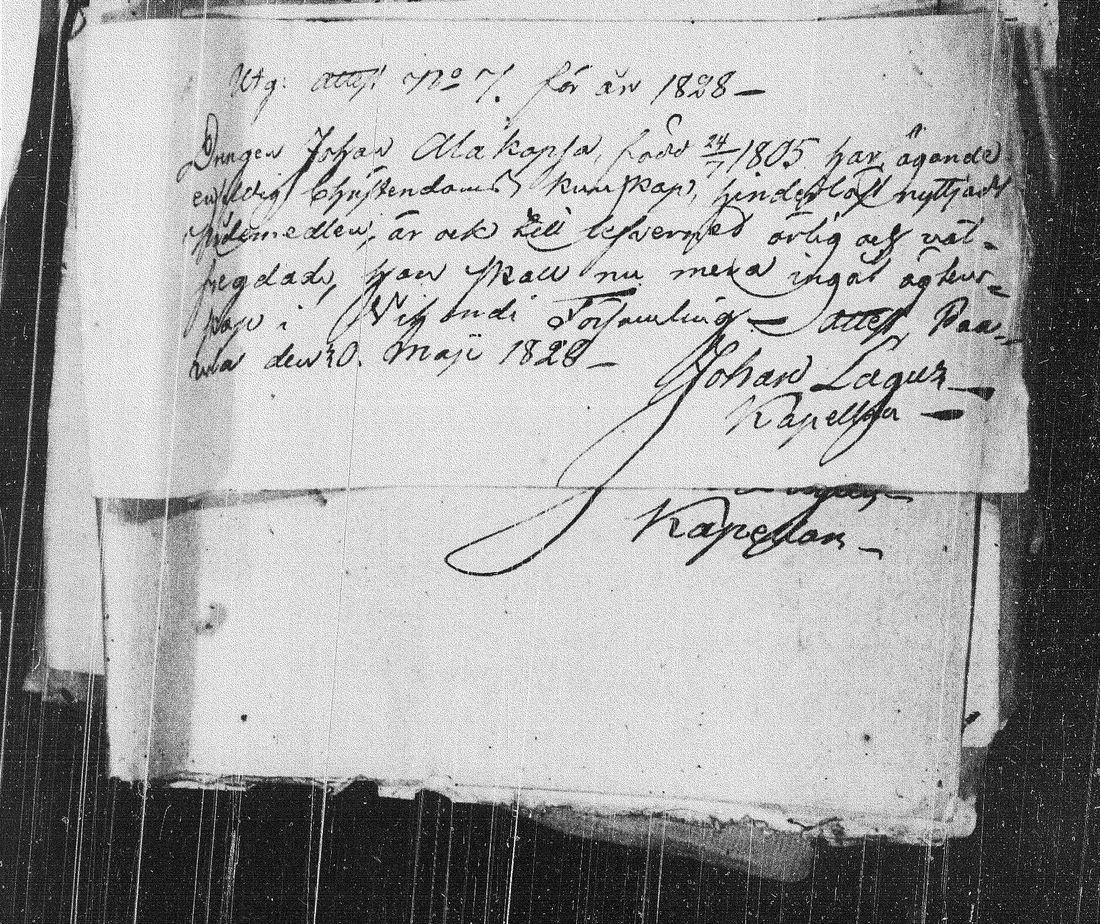 Utg: attest No 7. för år 1828 –
Drängen Johan Alakopsa, född 24/7 1805 har, ägande
enfaldig Christendoms kunskap, hinderlöst nyttjadt
nådemedlen, är ock till lefvernet ärlig och väl-
fregdad, han skall nu mera ingå i ägten-
skap i Församling – attest, Paa-
vola den 20. Maji 1828 –
Johan Lagus –
Kapellan –
Kapellan –